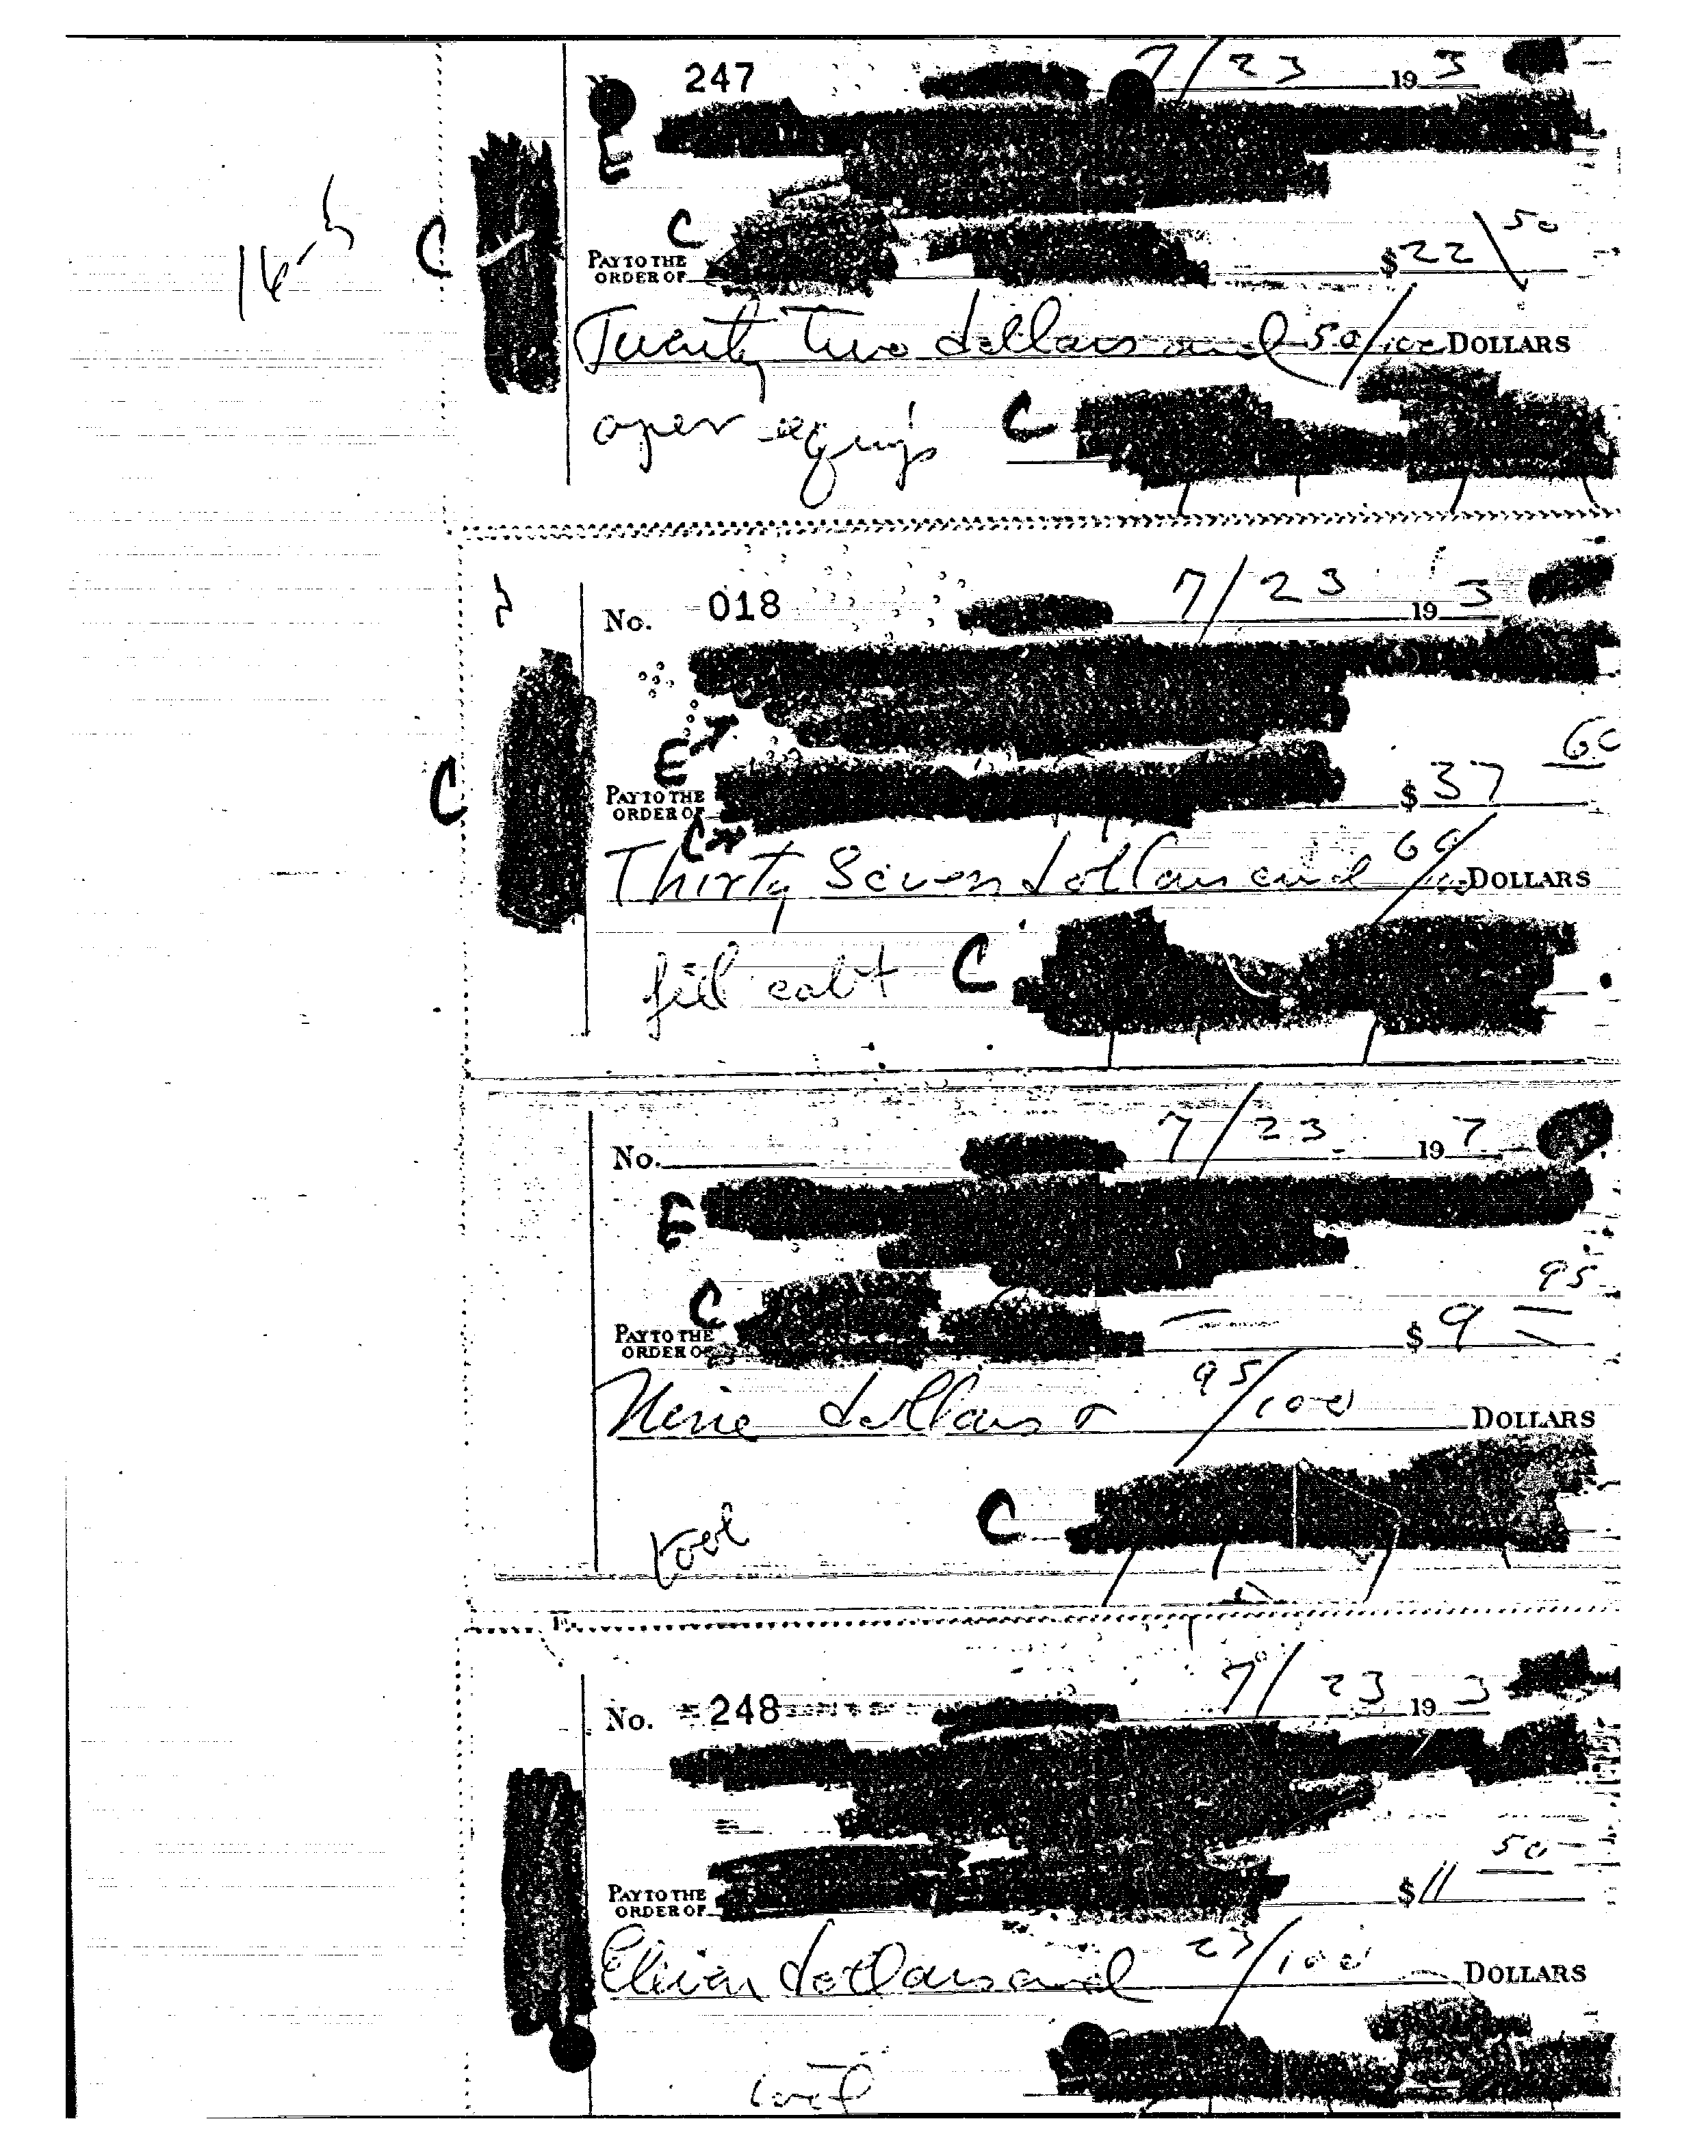 247
7/23 19 53
E
16-5
C
C
PAY TO THE
ORDER OF
$22 50
Twenty two dollars and 50/100 DOLLARS
oper equip C
No. 018
7/23 19 5
E
60
C
PAY TO THE
ORDER OF
$37
C
Thirty Seven dollars and 60/100 DOLLARS
C
No.
7/23 19
E
C
95
PAY TO THE
ORDER OF
$9
Nine dollars 95/100 DOLLARS
C
No. 248
7/23 19
50
PAY TO THE
ORDER OF
$11
Eleven dollars and 23/100 DOLLARS